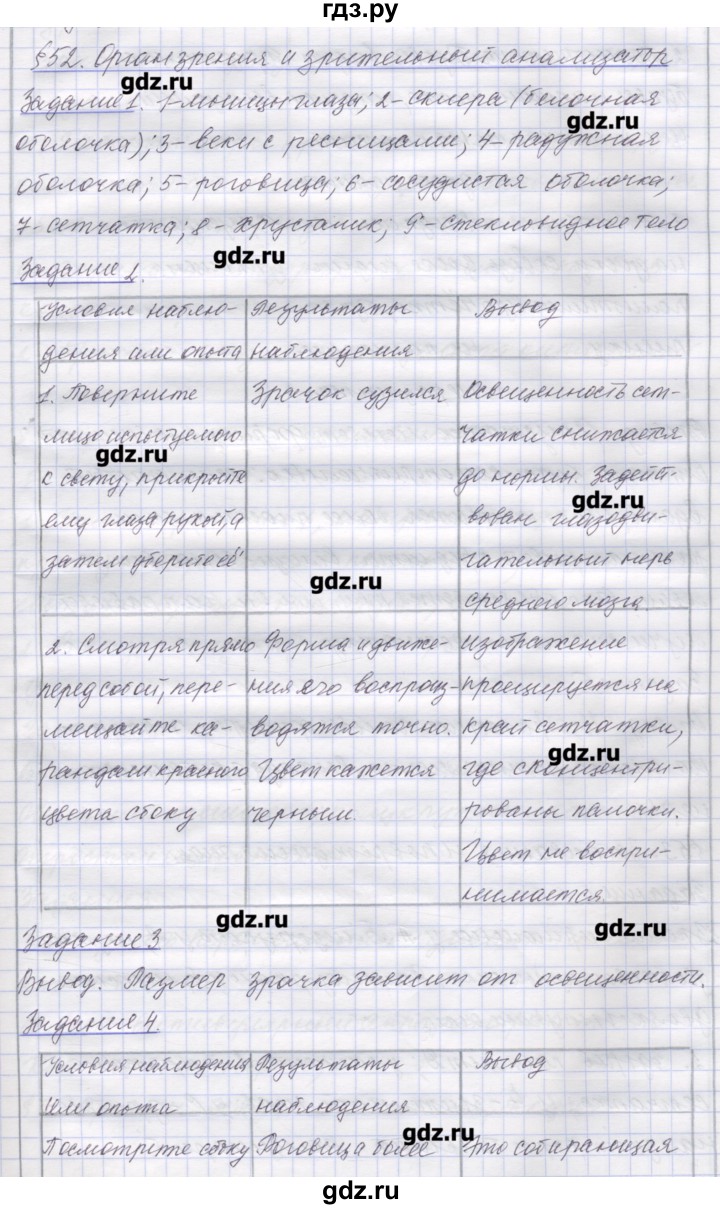 гдз.ру
§52. Орган зрения и зрительный анализатор
gdz.ru
Задание 1. 1-мышцы глаза; 2-склера (белочная
gdz.ru
оболочка); 3-веки с ресницами; 4-радужная
оболочка; 5-роговица; 6-сосудистая оболочка;
7-сетчатка; 8-хрусталик; 9-стекловидное тело
gdz.ru
Задание 2.
Условия наблю-
дения или опыта
Результаты
наблюдения
Вывод
1. Поверните
лицо испытуемого
gdz.ru
к свету, прикройте
ему глаза рукой, а
затем уберите её
Зрачок сузился
gdz.ru
Освещенность сет-
чатки снижается
до нормы. Задейст-
gdz.ru
вован глазодви-
гательный нерв
среднего мозга.
2. Смотря прямо
перед собой, пере-
мещайте ка-
рандаш красного
цвета сбоку
Форма и движе-
ния его воспроиз-
водятся точно.
Цвет кажется
черным.
Изображение
проецируется на
край сетчатки,
gdz.ru
где сконцентри-
рованы палочки.
Цвет не воспри-
нимается.
gdz.ru
gdz.ru
Задание 3
Вывод. Размер зрачка зависит от освещенности.
Задание 4.
Условия наблюдения
или опыта
Результаты
наблюдения
Вывод
Посмотрите сбоку
Роговица более
gdz.ru
Это собирающая
gdz.ru